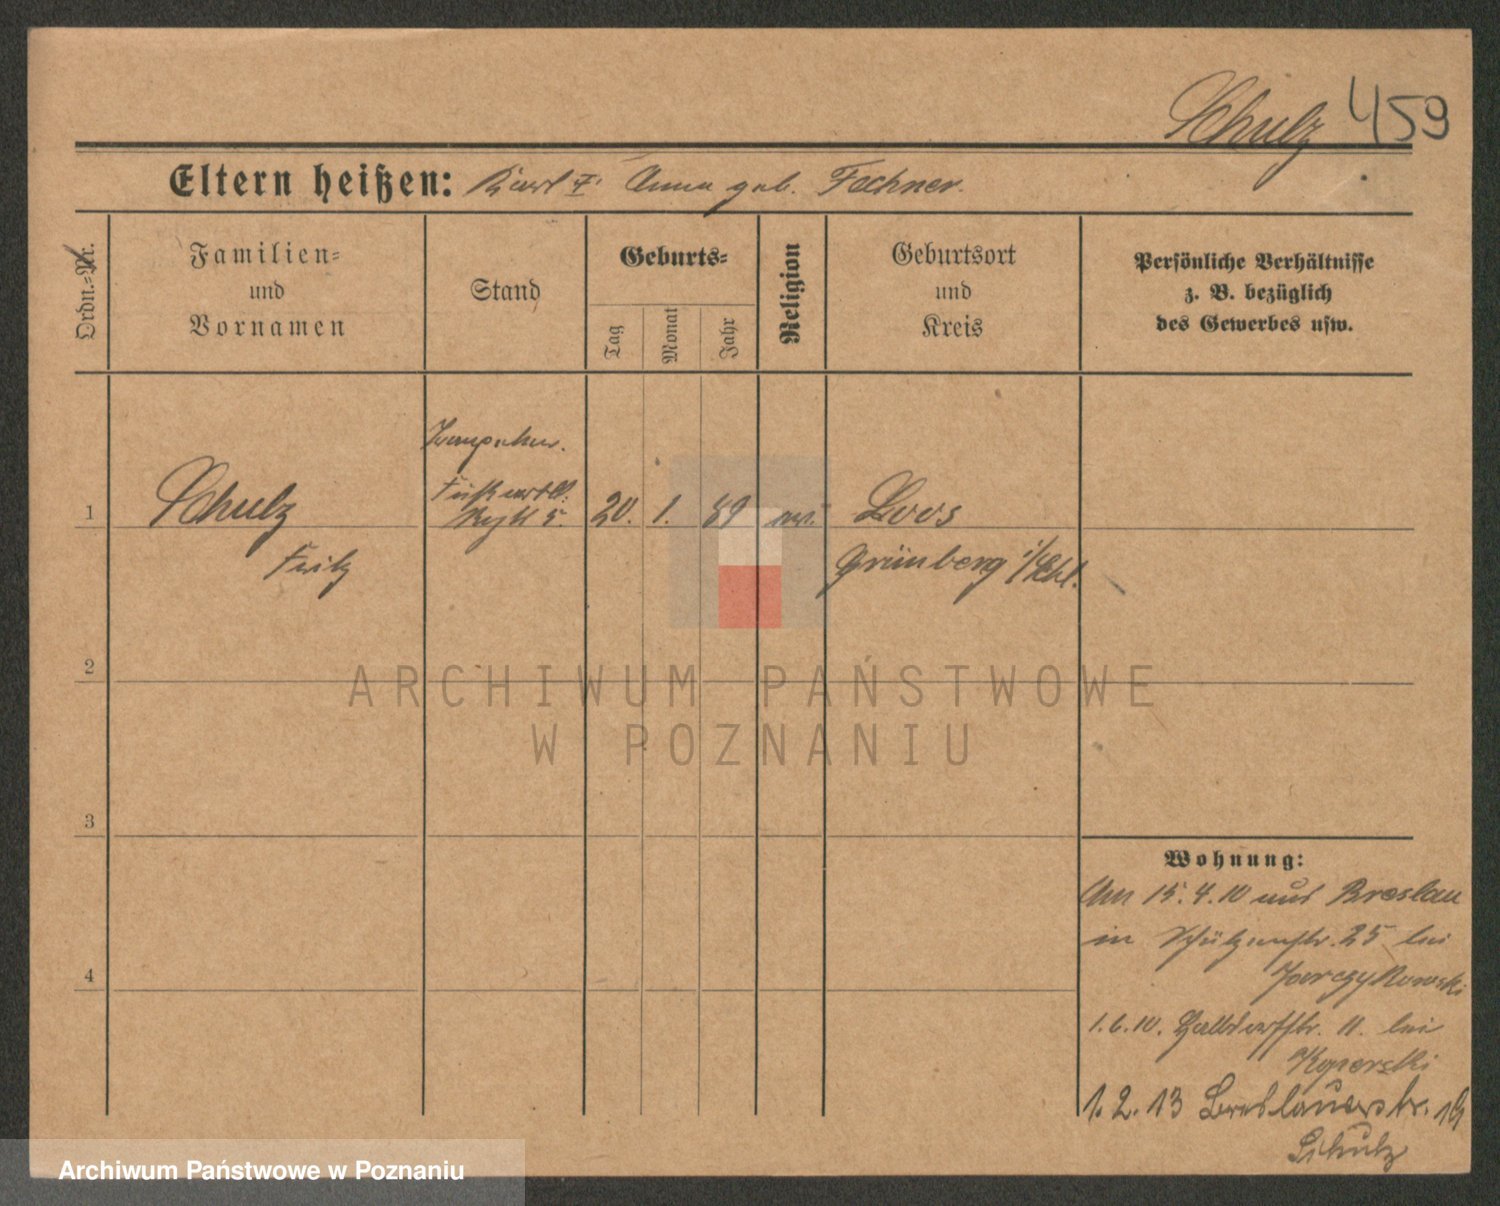 Schulz 459
Eltern heißen: Karl u. Anna geb. Fechner.
Ordn.-Nr.
Familien-
und
Vornamen
Stand
Geburts-
Tag
Monat
Jahr
Religion
Geburtsort
und
Kreis
Persönliche Verhältnisse
z. B. bezüglich
des Gewerbes usw.
1
Schulz
Fritz
20. 1. 89
Loos
Grünberg i/Schl.
2
ARCHIWUM PAŃSTWOWE
W POZNANIU
3
4
Wohnung:
Am 15.4.10 aus Breslau
in Schützenstr. 25 bei
1.6.10. Halbdorfstr. 11. bei
Koperski
1.2.13 Breslauerstr. 19
Schulz
Archiwum Państwowe w Poznaniu